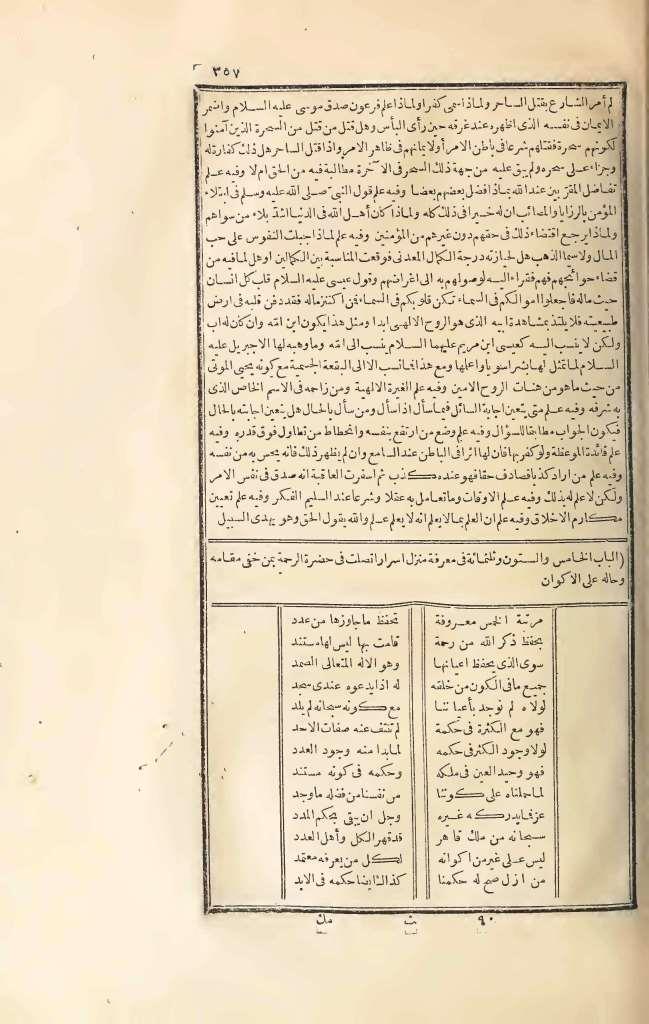 ٣٥٧
لم أمر الشارع بقتل الساحر ولماذا سمى كفرا ولماذا علم فرعون صدق موسى عليه السلام واضمر
الايمان فى نفسه الذى اظهره عند غرقه حين رأى البأس وهل قتل من قتل من السحرة الذين آمنوا
لكونهم سحرة فقتلهم شرعا فى باطن الامر أو لايمانهم فى ظاهر الامر واذا قتل الساحر هل ذلك كفارة له
وجزاء على سحره ولم يبق عليه من جهة ذلك السحر فى الآخرة مطالبة فيه من الحق ام لا وفيه علم
تفاضل المقربين عند الله بماذا فضل بعضهم بعضا وفيه علم قول النبى صلى الله عليه وسلم فى ابتلاء
المؤمن بالرزايا والمصائب ان له خيرا فى ذلك كله ولماذا كان أهل الله فى الدنيا اشد بلاء من سواهم
ولماذا يرجع اقتضاء ذلك فى حقهم دون غيرهم من المؤمنين وفيه علم لماذا جبلت النفوس على حب
المال ولاسيما الذهب هل لحيازته درجة الكمال المعدنى فوقعت المناسبة بين الكمالين او هل لما فيه من
قضاء حوائجهم فهم فقراء اليه لوصولهم به الى اغراضهم وقول عيسى عليه السلام قلب كل انسان
حيث ماله فاجعلوا اموالكم فى السماء تكن قلوبكم فى السماء فمن اكتنز ماله فقد دفن قلبه فى ارض
طبيعته فلا يلتذ بمشاهدة ابيه الذى هو الروح الالهى ابدا ومثل هذا يكون ابن امّه وان كان له اب
ولكن لا ينسب اليه كعيسى ابن مريم عليهما السلام ينسب الى امّه وما وهبه لها الا جبريل عليه
السلام لما تمثل لها بشرا سويا واعلمها ومع هذا فما نسب الا الى البقعة الجسمية مع كونه يحيى الموتى
من حيث ما هو من هبات الروح الامين وفيه علم الغيرة الالهية ومن زاحمه فى الاسم الخاص الذى
به شرفه وفيه علم متى يتعين اجابة السائل فيما سأل اذا سأل ومن سأل بالحال هل يتعين اجابته بالحال
فيكون الجواب مطابقا للسؤال وفيه علم وضع من ارتفع بنفسه وانحطاط من تطاول فوق قدره وفيه
علم فائدة الموعظة ولو كفر بها فان لها اثرا فى الباطن عند السامع وان لم يظهر ذلك فانه يحس به من نفسه
وفيه علم من اراد كذبا فصادف حقا فهو عنده كذب ثم اسفرت العاقبة انه صدق فى نفس الامر
ولكن لا علم له بذلك وفيه علم الاوقات وما تعامل به عقلا وشرعا عند السليم الفكر وفيه علم تعيين
مكارم الاخلاق وفيه علم ان العلم بما لا يعلم انه لا يعلم علم والله يقول الحق وهو يهدى السبيل
(الباب الخامس والستون وثلثمائة فى معرفة منزل اسرار اتصلت فى حضرة الرحمة بمن خفى مقامه
وحاله على الاكوان
مرتبة الخمس معروفة تحفظ ما جاوزها من عدد
بحفظ ذكر الله من رحمة قامت بها ليس لها مستند
سوى الذى يحفظ اعيانها وهو الاله المتعالى الصمد
جميع ما فى الكون من خلقه له اذا يدعوه عندى سجد
لولاه لم نوجد بأعياننا مع كونه سبحانه لم يلد
فهو مع الكثرة فى حكمة لم تنتف عنه صفات الاحد
لولا وجود الكثر فى حكمه لما بدا منه وجود العدد
فهو وحيد العين فى ملكه وحكمه فى كونه مستند
لما حملناه على كوننا من نفسنا من فضله ما وجد
عز فما يدركه غيره وجل ان يبقى بحكم المدد
سبحانه من ملك قاهر قد قهر الكل وأهل العدد
ليس على غير من اكوانه لكل من يعرفه معتمد
من ازل صح له حكمنا كذاك ايضا حكمه فى الابد
٩٠ ت مك